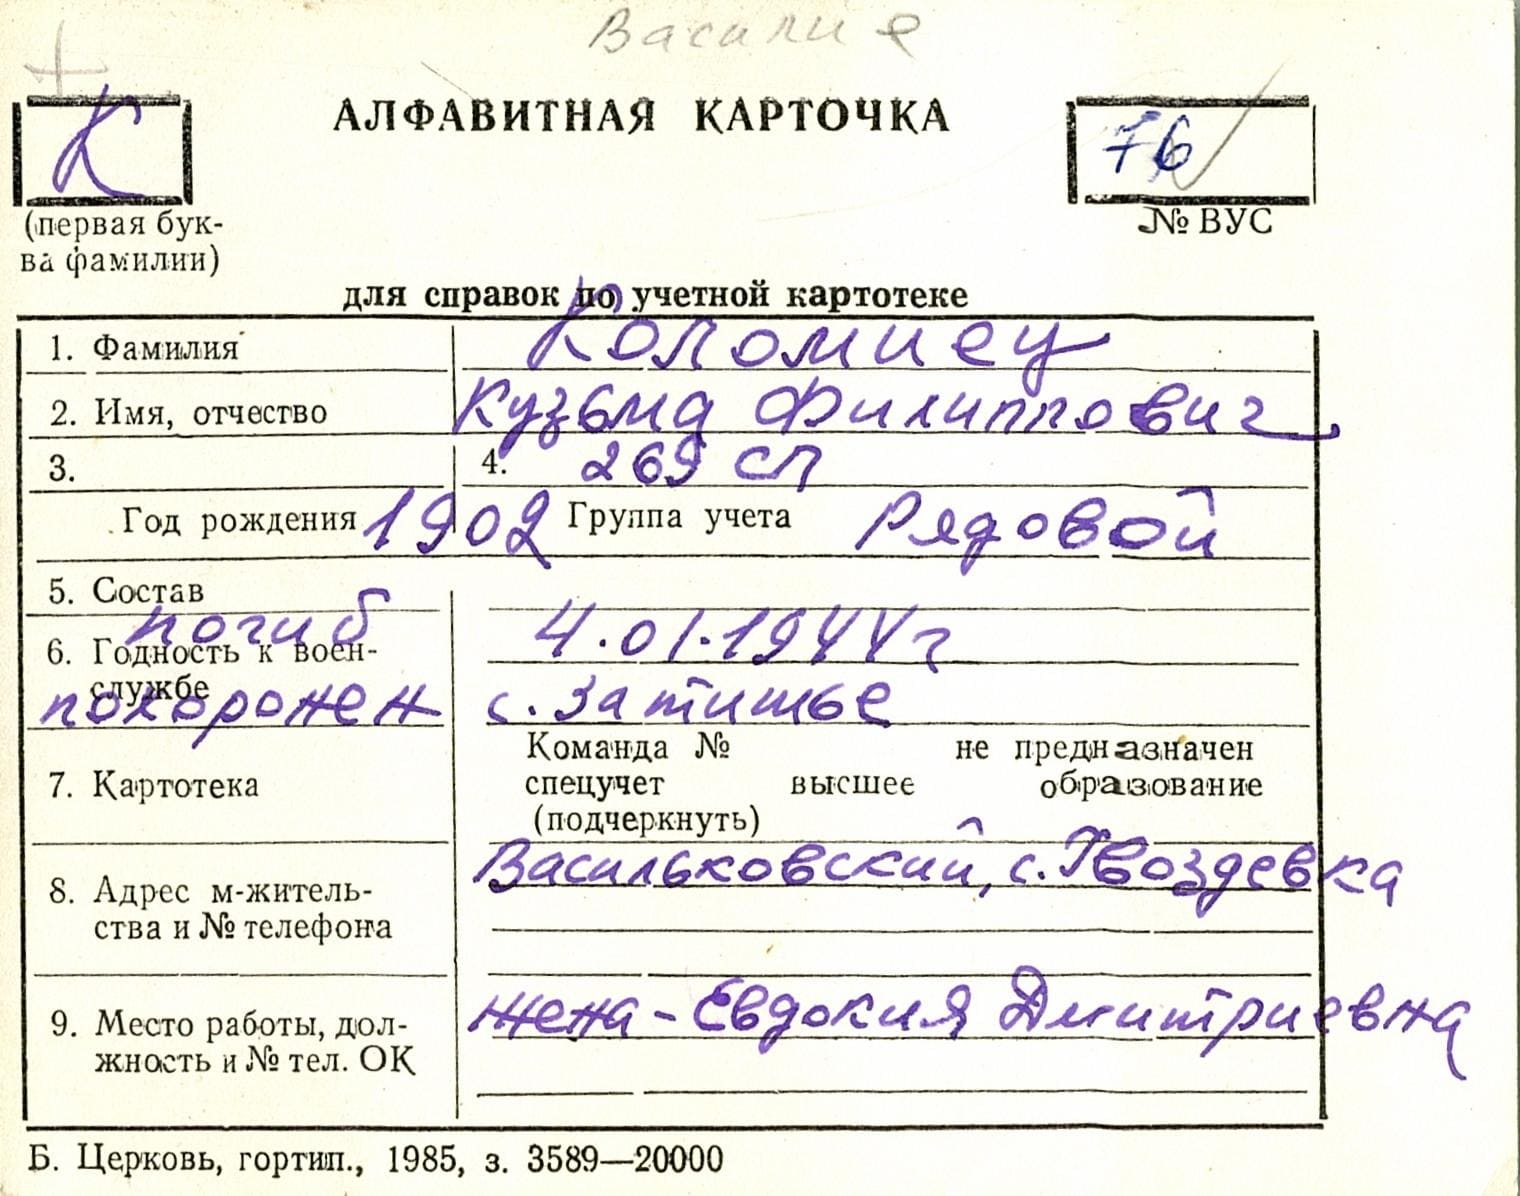 Василие
К
АЛФАВИТНАЯ КАРТОЧКА
76
(первая бук-
ва фамилии)
№ ВУС
для справок по учетной картотеке
1. Фамилия Коломиец
2. Имя, отчество Кузьма Филиппович
3. 4. 269 сп
Год рождения 1902 Группа учета Рядовой
5. Состав
погиб 4.01.1944 г
6. Годность к воен-
службе
похоронен с. Затишье
Команда № не предназначен
7. Картотека спецучет высшее образование
(подчеркнуть)
Васильковский, с. Гвоздевка
8. Адрес м-житель-
ства и № телефона
жена - Евдокия Дмитриевна
9. Место работы, дол-
жность и № тел. ОК
Б. Церковь, гортип., 1985, з. 3589—20000